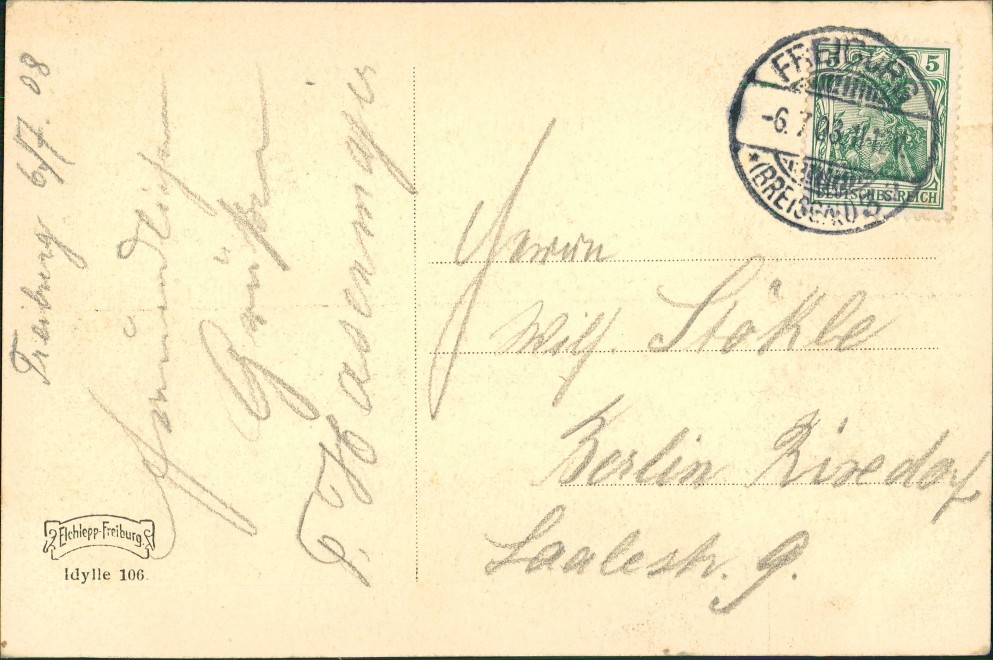 Freiburg 6/7. 08
Freundlichen
Grüßen
F. Hasenmayer
Elchlepp-Freiburg.
Idylle 106.
FREIBURG
-6. 7. 08
* (BREISGAU)
5 5
DEUTSCHES REICH
Herrn
Wilh. Stökle
Berlin Rixdorf
Saalestr. 9.